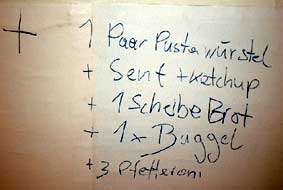 + 1 Paar Pusta würstel
+ Senf + Ketchup
+ 1 Scheibe Brot
+ 1x Buggel
+ 3 Pfefferoni